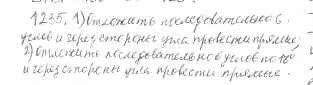 1235. 1) Отложить последовательно 6
углов и через стороны угла провести прямые;
2) отложить последовательно 8 углов по 10°
и через стороны угла провести прямые.